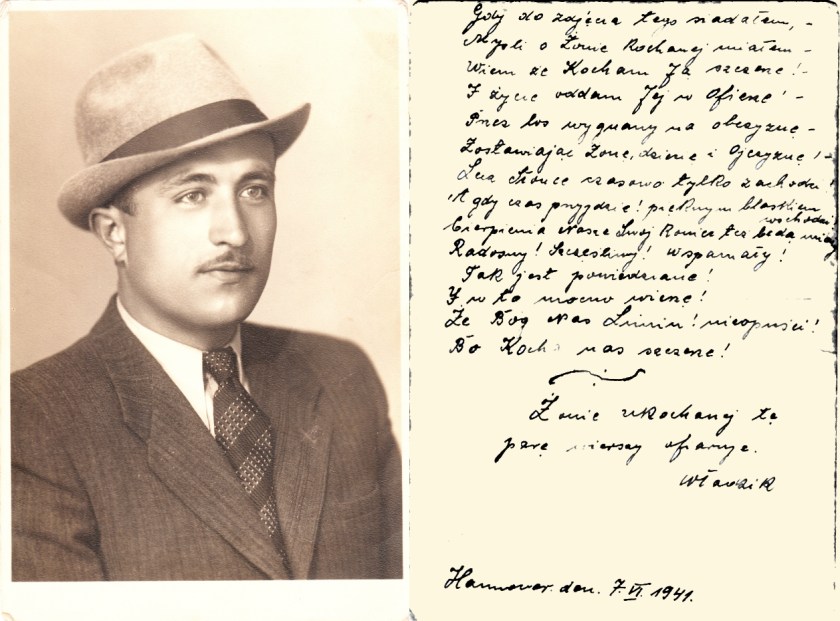 Gdy do zdjęcia tego siadałem, -
Myśli o Żonie Kochanej miałem -
Wiem że Kocham Ją szczerze! -
I życie oddam Jej w Ofierze! -
Przez los wygnany na obczyznę -
Zostawiając Żonę, dzienie i Ojczyznę! -
Lecz słońce czasowo tylko zachodzi!
A gdy czas przyjdzie! pięknym blaskiem
wschodzi
Cierpienia Nasze Swój Koniec też będą miały
Radosny! Szczęśliwy! Wspaniały!
Tak jest powiedziane!
Y w to mocno wierzę!
Że Bóg Nas Luniu! nieopuści!
Bo Kocha nas szczerze!
Żonie ukochanej tę
parę wierszy ofiaruje.
Władzik
Hannover. den. 7.VI. 1941.